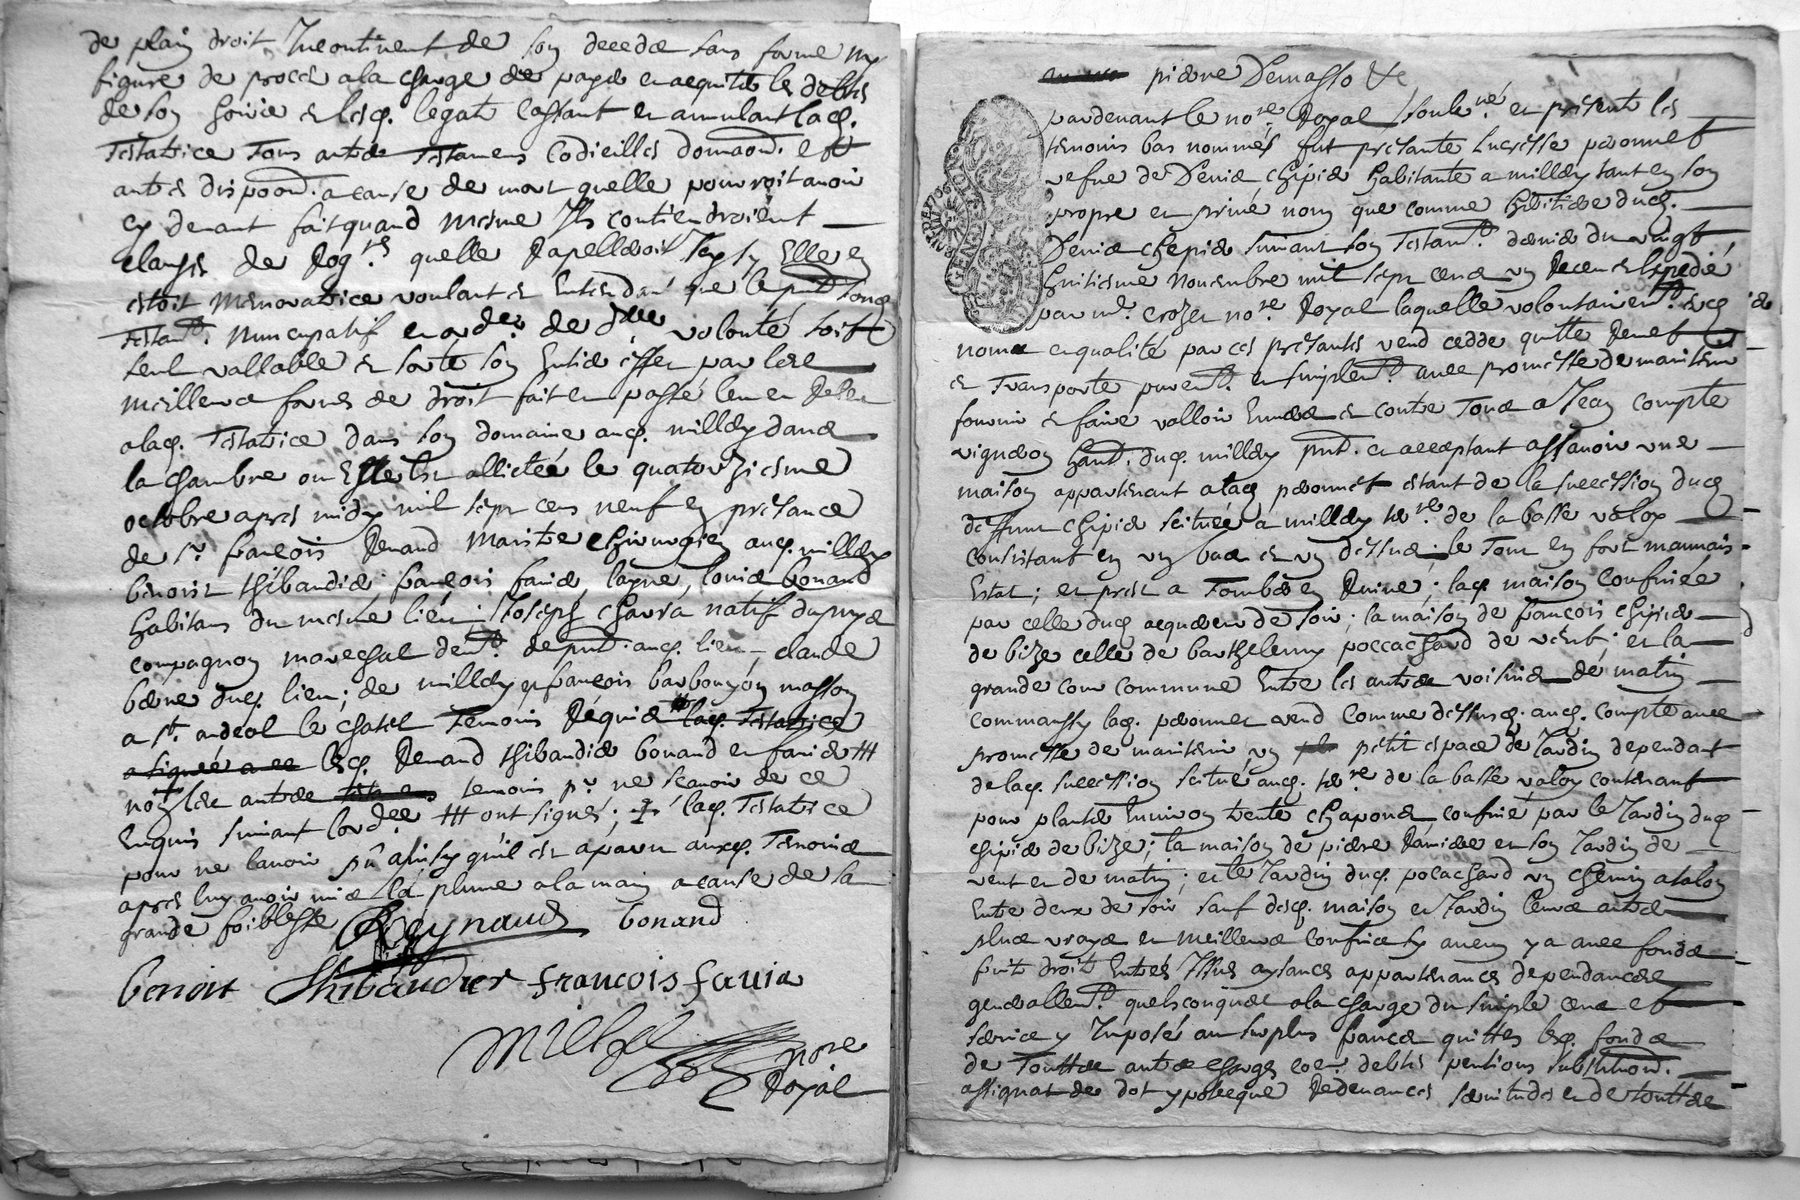 de plain droit Incontinent de son decedz sans forme ny
figure de proces a la charge de payer et acquiter les debtes
de son hoirie et lesq. legats cassant et annulant lad.
Testatrice Tous autres Testamens Codicilles donnaon. et
autres dispoon. a cause de mort quelle pourroit avoir
cy devant fait quand mesme Ils contiendroient
clauses de Rog.res quelle Rapelleroit Icy sy Elle en
estoit memoratrice voulant et Entendant que le pnt. sond.
Testamt. Nuncupatif et ordre de dre volonté soit
seul vallable et sorte son Entier effet par les
meilleures formes de droit fait et passé leu et Releu
a lad. Testatrice dans son domaine aud. millery dans
la chambre ou Elle est allictée le quatorziesme
octobre apres midy mil sept cens neuf en presance
de sr. françois Renaud Maistre Chirurgien aud. millery
benoist thibaudier, françois favier, layné, louis bonand
habitans du mesme lieu; Joseph Charra natif du puy
compagnon marechal demt. de pnt. aud. lieu, claude
berne dud. lieu; de millery et françois barbouyon masson
a st. andeol le chatel Temoins Requis lad. Testatrice
a signé avec lesq. Renaud thibaudier bonand et favier
non les autres temoins pr. ne scavoir de ce
Enquis suivant lordce ont signés; lad. Testatrice
pour ne lavoir pû ainsy qu'il est aparu auxq. Temoins
apres luy avoir mis la plume a la main a cause de sa
grande foiblesse Reynaud bonand
benoit Thibaudier francois favia
nore
Royal
pierre Demasso &c
pardevant le nore. Royal soubsné. et present les
temoins bas nommés fut presante lucresse peronnet
vefve de Denis chipier habitante a millery tant en son
propre et privé nom que comme heritiere dud.
Denis chipier suivant son Testamt. dernier du vingt
huitiesme Novembre mil sept cens un Receu et Expedié
par me. crozet nore. Royal laquelle volontairemt. esd.
noms et qualité par ces presantes vend cedde quitte Remet
et Transporte puremt. et simplemt. avec promesse de maintenir
fournir et faire valloir Envers et contre Tous a Jean compte
vigneron habt. dud. millery pnt. et acceptant assavoir une
maison appartenant a lad. peronnet estant de la succession dud.
deffunt chipier scituée a millery terre de la basse valoy
consistant en un bas et un dessus; le Tout en fort mauvais
Estat; et prest a Tomber en Ruine; lad. maison confinée
par celle dud. acquereur de soir; la maison de françois chipier
de bize celle de barthelemy poccachard de vent; et la
grande cour commune Entre les autres voisins de matin
comm'aussy lad. peronnet vend comme dessus aud. compte avec
promesse de maintenir un petit espace de Jardin dependant
de lad. succession scitué aud. terre de la basse valoy contenant
pour planter Environ trente chapons confiné par le Jardin dud.
chipier de bize; la maison de pierre Ramiere et son Jardin de
vent et de matin; et le Jardin dud. pocachard un chemin a talon
Entre deux de soir sauf desd. maison et Jardin leurs autres
plus vrays et meilleurs confins sy aucun y a avec fonds
fruit droit Entrés Issues aysances appartenances dependances
generallemt. quelsconques a la charge du simple cens et
service y Imposé au surplus francs quittes lesd. fonds
de Touttes autres charges debtes pentions substituon.
assignat de dot ypoteque Redevances servitudes et de touttes